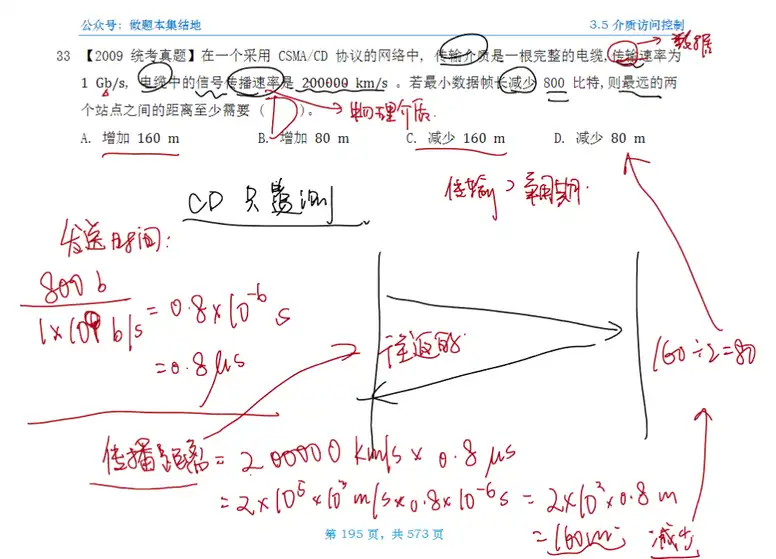 公众号：做题本集结地 3.5 介质访问控制
33 【2009 统考真题】在一个采用 CSMA/CD 协议的网络中，传输介质是一根完整的电缆，传输速率为
数据
1 Gb/s，电缆中的信号传播速率是 200000 km/s 。若最小数据帧长减少 800 比特，则最远的两
个站点之间的距离至少需要（ D ）。
物理介质.
A. 增加 160 m B. 增加 80 m C. 减少 160 m D. 减少 80 m
CD
传输
发送时间：
800 b
1×10⁹ b/s
= 0.8×10⁻⁶ s
= 0.8 μs
往返
160÷2=80
传播距离 = 200000 km/s × 0.8 μs
= 2×10⁵×10³ m/s×0.8×10⁻⁶ s = 2×10²×0.8 m
= 160m 减少
第 195 页，共 573 页